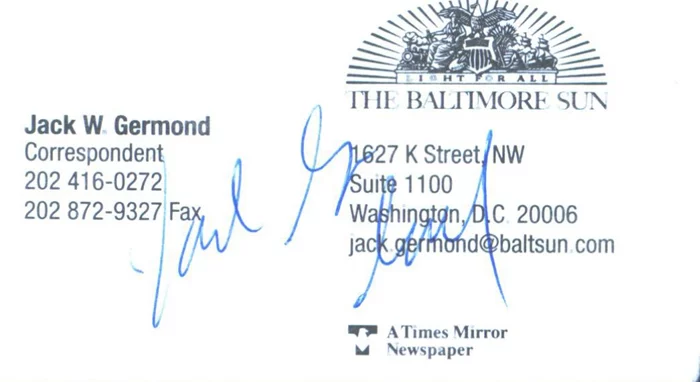 LIGHT FOR ALL
THE BALTIMORE SUN
Jack W. Germond
Correspondent
202 416-0272
202 872-9327 Fax
1627 K Street, NW
Suite 1100
Washington, D.C. 20006
jack.germond@baltsun.com
Jack Germond
A Times Mirror
Newspaper